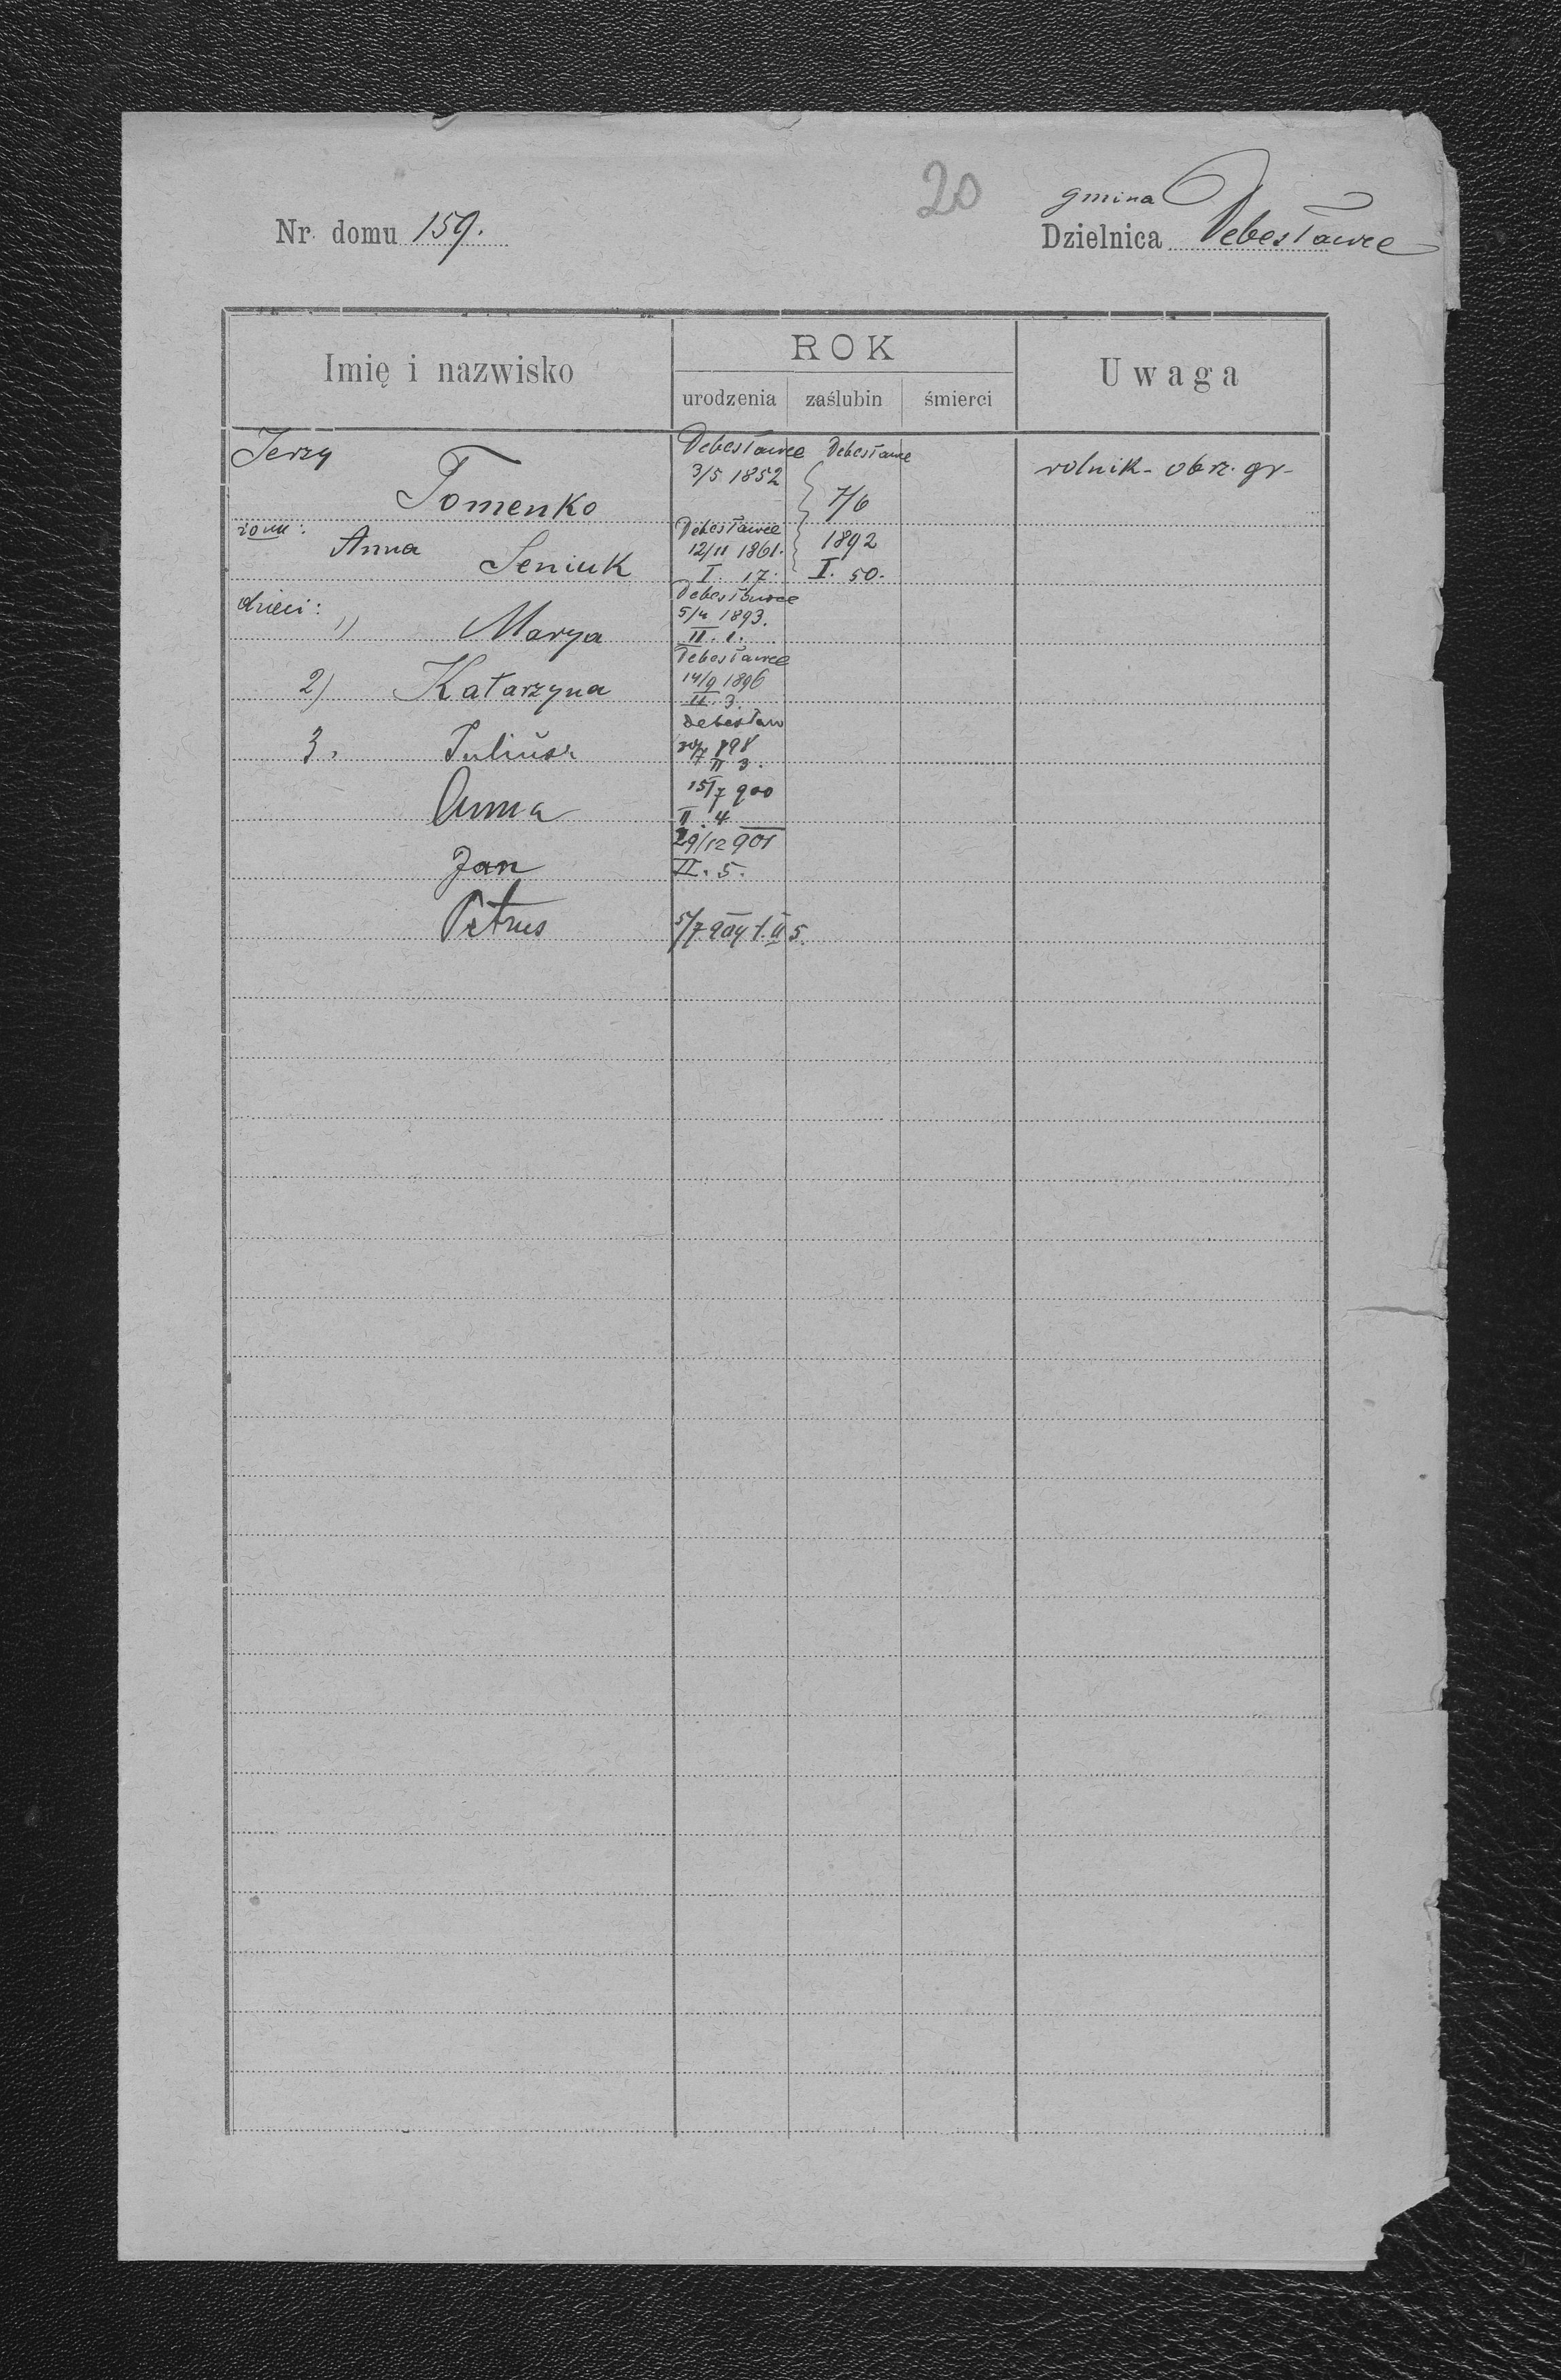 20
gmina
Nr. domu 159.
Dzielnica Debesławce
Imię i nazwisko
ROK
urodzenia zaślubin śmierci
Uwaga
Jerzy
Tomenko
Debesławce
3/5 1852
Debesławce
7/6
1892
I. 50.
rolnik - obrz. gr-
żona:
Anna
Seniuk
Debesławce
12/11 1861.
I. 17.
dzieci:
1) Marya
Debesławce
5/4 1893.
II. 1.
2) Katarzyna
Debesławce
14/9 1896
II. 3.
3. Juliusz
Debesław
/7 898
II 3.
Anna
15/7 900
II. 4
Jan
29/12 901
II. 5.
Petrus
5/7 904 t. II 5.